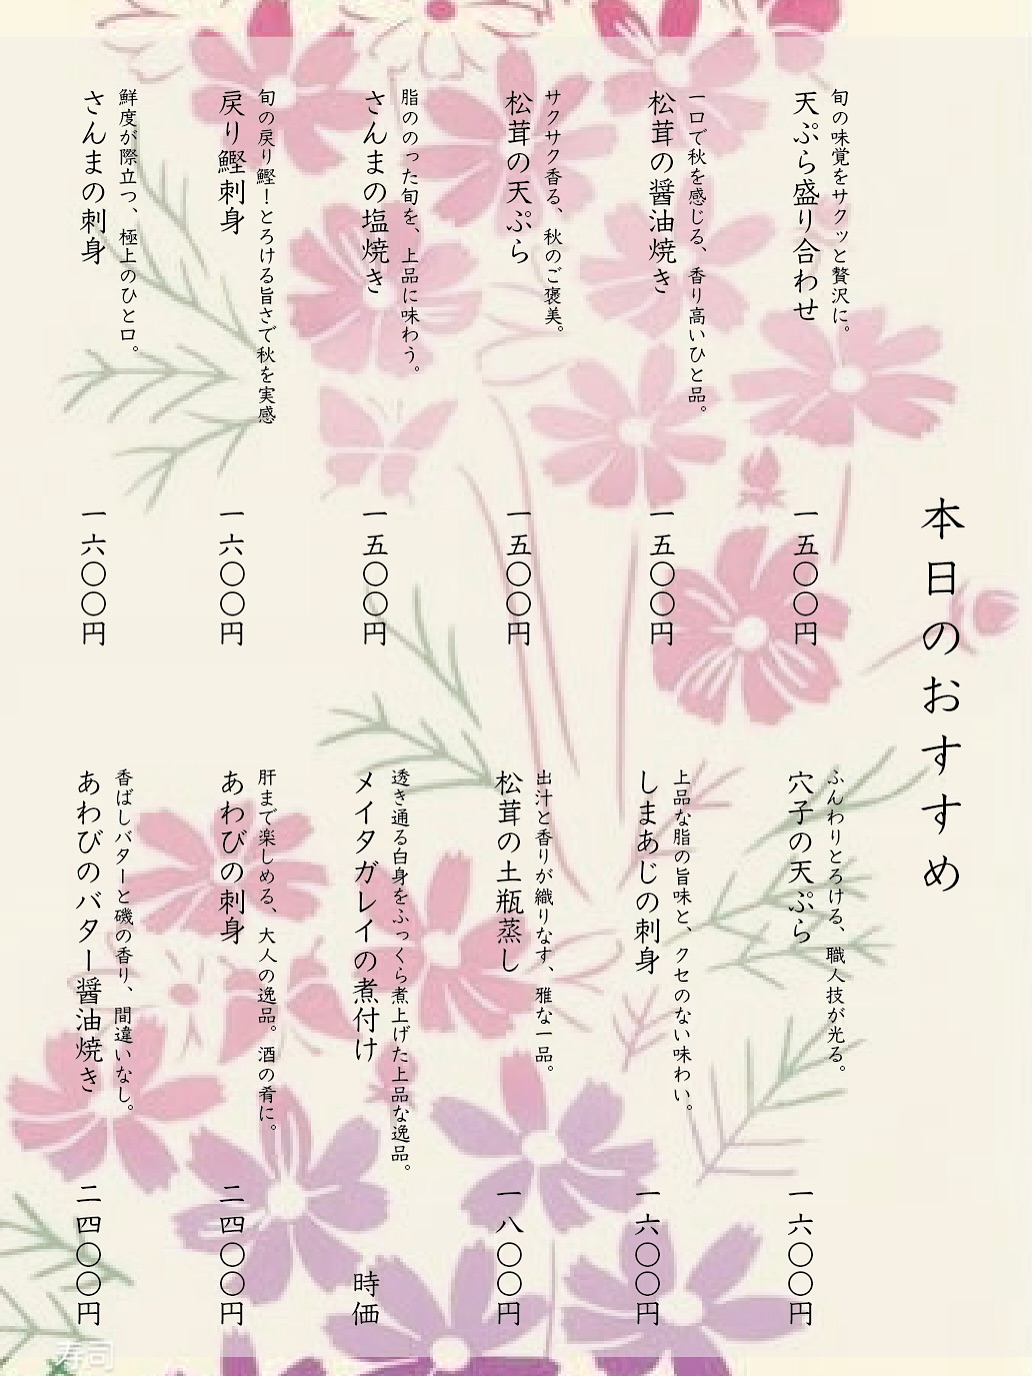 本日のおすすめ
旬の味覚をサクッと贅沢に。
天ぷら盛り合わせ
一五〇〇円
一口で秋を感じる、香り高いひと品。
松茸の醤油焼き
一五〇〇円
サクサク香る、秋のご褒美。
松茸の天ぷら
一五〇〇円
脂ののった旬を、上品に味わう。
さんまの塩焼き
一五〇〇円
旬の戻り鰹！とろける旨さで秋を実感
戻り鰹刺身
一六〇〇円
鮮度が際立つ、極上のひと口。
さんまの刺身
一六〇〇円
ふんわりとろける、職人技が光る。
穴子の天ぷら
一六〇〇円
上品な脂の旨味と、クセのない味わい。
しまあじの刺身
一六〇〇円
出汁と香りが織りなす、雅な一品。
松茸の土瓶蒸し
一八〇〇円
透き通る白身をふっくら煮上げた上品な逸品。
メイタガレイの煮付け
時価
肝まで楽しめる、大人の逸品。酒の肴に。
あわびの刺身
二四〇〇円
香ばしバターと磯の香り、間違いなし。
あわびのバター醤油焼き
二四〇〇円
寿司